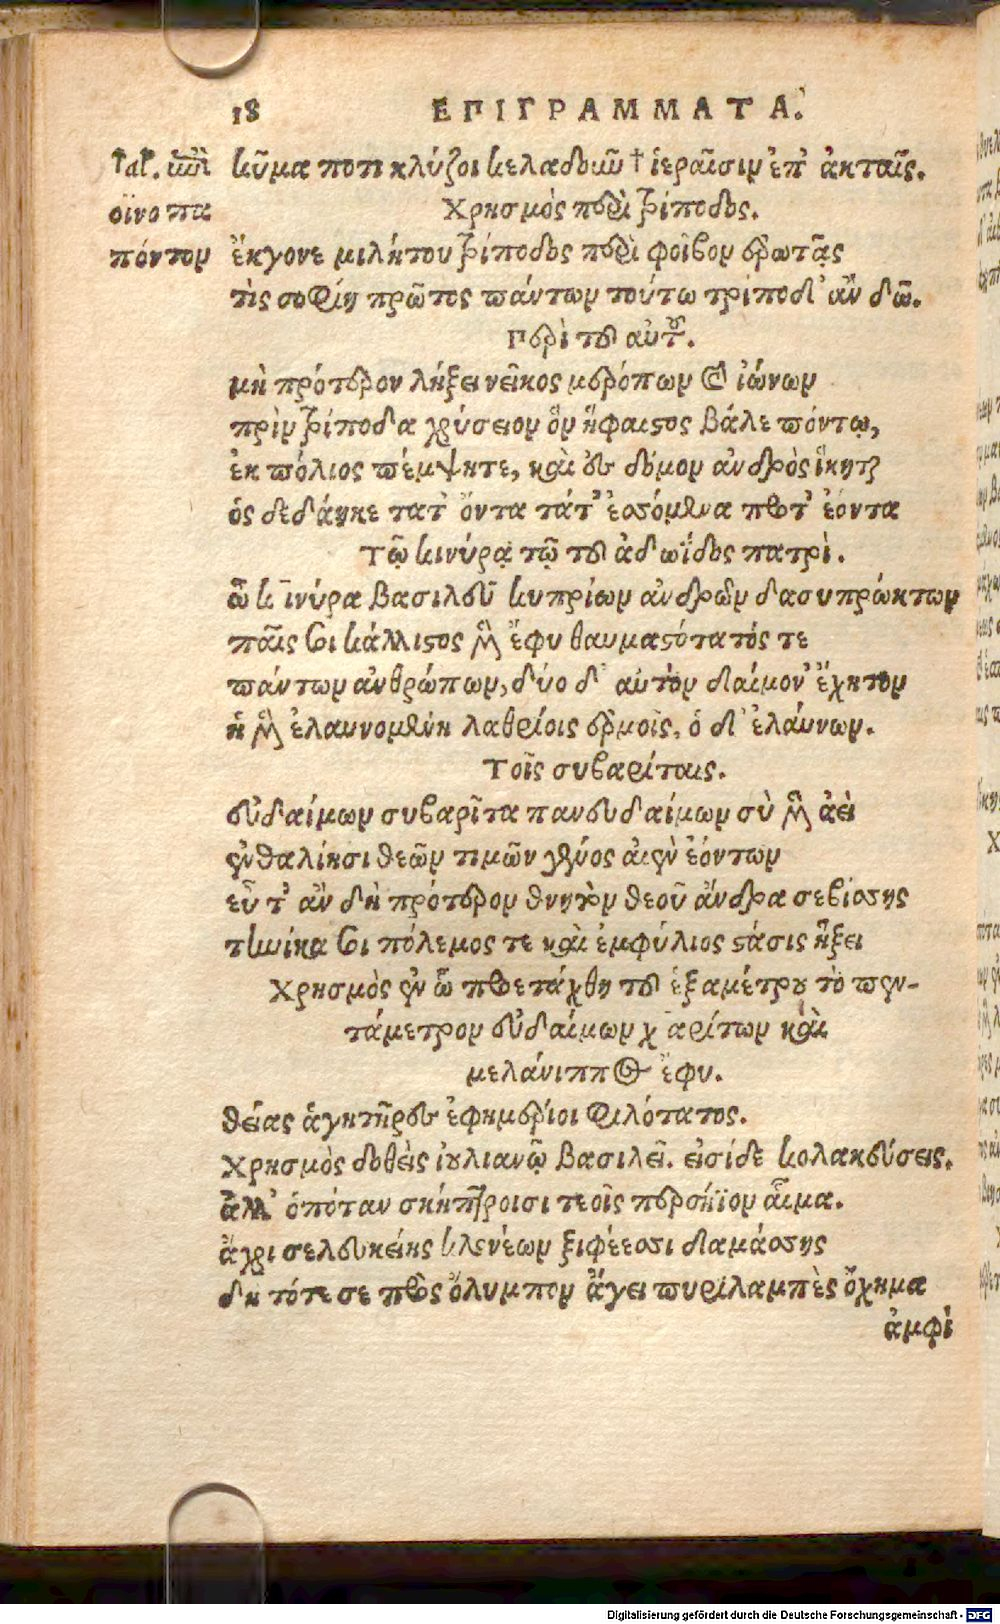 18 ΕΠΙΓΡΑΜΜΑΤΑ.
†al. ἐπὶ
οἴνοπα
πόντον
κῦμα ποτι κλύζοι κελαδοῦν † ἱεραῖσιν ἐπ' ἀκταῖς.
Χρησμὸς περὶ τρίποδος.
ἔκγονε μιλήτου τρίποδος περὶ φοῖβον ἐρωτᾷς
τὶς σοφίῃ πρῶτος πάντων τούτω τρίποδ' ἂν δῶ.
Περὶ τοῦ αὐτοῦ.
μὴ πρότερον λήξει νεῖκος μερόπων καὶ ἰώνων
πρὶν τρίποδα χρύσειον ὃν ἥφαιστος βάλε πόντῳ,
ἐκ πόλιος πέμψητε, καὶ ἐς δόμον ἀνδρὸς ἵκηται
ὁς δεδάηκε τατ' ὄντα τάτ' ἐσσόμενα προτ' ἐόντα
Τῷ κινύρᾳ τῷ τοῦ ἀδωΐδος πατρὶ.
ὦ κινύρα βασιλεῦ κυπρίων ἀνδρῶν δασυπρώκτων
παῖς σοι κάλλιστος μὲν ἔφυ θαυμαστότατός τε
πάντων ἀνθρώπων, δύο δ' αυτὸν δαίμον' ἔχητον
ἡ μὲν ἐλαυνομένη λαθρίοις ἐρμοῖς, ὁ δ' ἐλαύνων.
Τοῖς συβαρίταις.
εὐδαίμων συβαρῖτα πανευδαίμων σὺ μὲν ἀεὶ
ἐν θαλίῃσι θεῶν τιμῶν γένος αἰεὶν ἐόντων
εὖ τ' ἂν δὴ πρότερον θνητὸν θεοῦ ἄνδρα σεβίσσης
τηνίκα σοι πόλεμος τε καὶ ἐμφύλιος στάσις ἥξει
Χρησμὸς ἐν ὧ προετάχθη τοῦ ἑξαμέτρου τὸ πεν-
τάμετρον εὐδαίμων χ αρίτων καὶ
μελάνιππος ἔφυ.
θείας ἁγητῆρες ἐφημερίοι φιλότατος.
Χρησμὸς δοθεὶς ἰουλιανῷ βασιλεῖ. εἰσίδε κολακεύσεις.
ἀλλ' ὁπόταν σκήπτροισι τεοῖς περσήϊον αἷμα.
ἄχρι σελευκείης κλονέων ξιφέεσσι δαμάσσης
δὴ τότε σε πρὸς ὄλυμπον ἄγει πυριλαμπὲς ὄχημα
ἀμφὶ
Digitalisierung gefördert durch die Deutsche Forschungsgemeinschaft - DFG